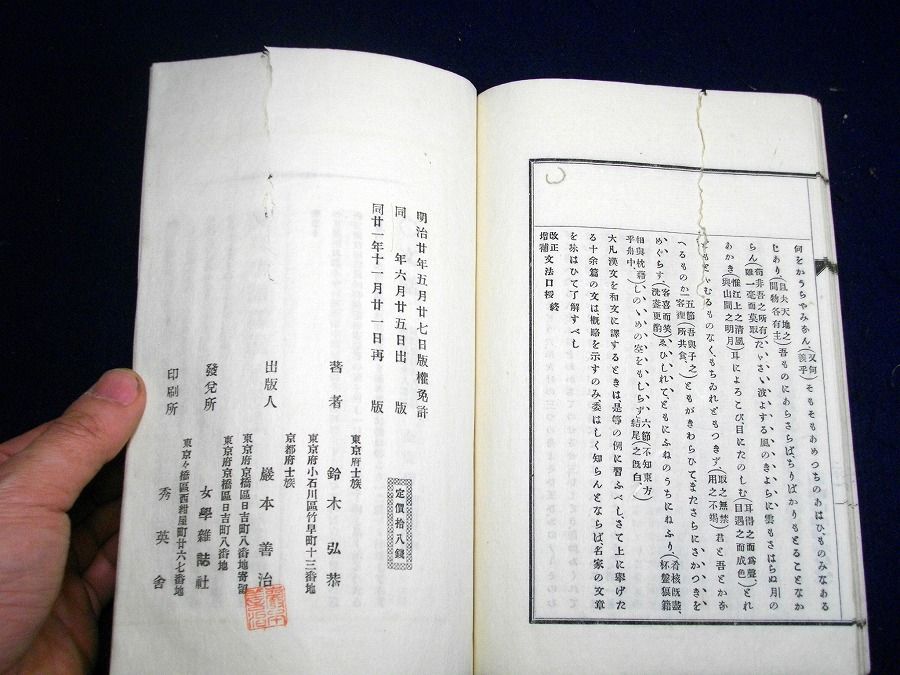 何をかうらやみなん、（又何羨乎）そもそもあめつちのあはひ、ものみなある
じあり（且夫天地之間物各有主）吾ものにあらさらば、ちりばかりもとることなか
らん（苟非吾之所有雖一毫而莫取）
月の
あかき（惟江上之清風與山間之明月）耳によろこび、目にたのしむ（耳得之而爲聲目遇之而成色）とれ
ものなく、もちゐれともつきず、（取之無禁用之不竭）君と吾とかゝ
へるものか五節（吾與子之所共食、）ともがきわらひて、またさらにさかつきを
めぐらす（客喜而笑、洗盞更酌）ゑひしれてともにふねのうちにねふり（肴核既盡、杯盤狼籍
相與枕藉乎舟中）しのゝめの空をもしらず、六節（不知東方之既白、）結尾
大凡漢文を和文に譯するときは、是等の例に習ふべし、さて上に擧げた
る十余篇の文は概略を示すのみ委はしく知らんとならば名家の文章
を味はひて了解すべし
改正增補文法口授終
明治廿年五月廿七日版權免許
同年六月廿五日出版
同廿一年十一月廿一日再版
定價拾八錢
東京府士族
著者 鈴木弘恭
東京府小石川區竹早町十三番地
京都府士族
出版人 巖本善治
東京府京橋區日吉町八番地寄留
東京府京橋區日吉町八番地
發兌所 女學雜誌社
東京々橋區西紺屋町廿六七番地
印刷所 秀英舍